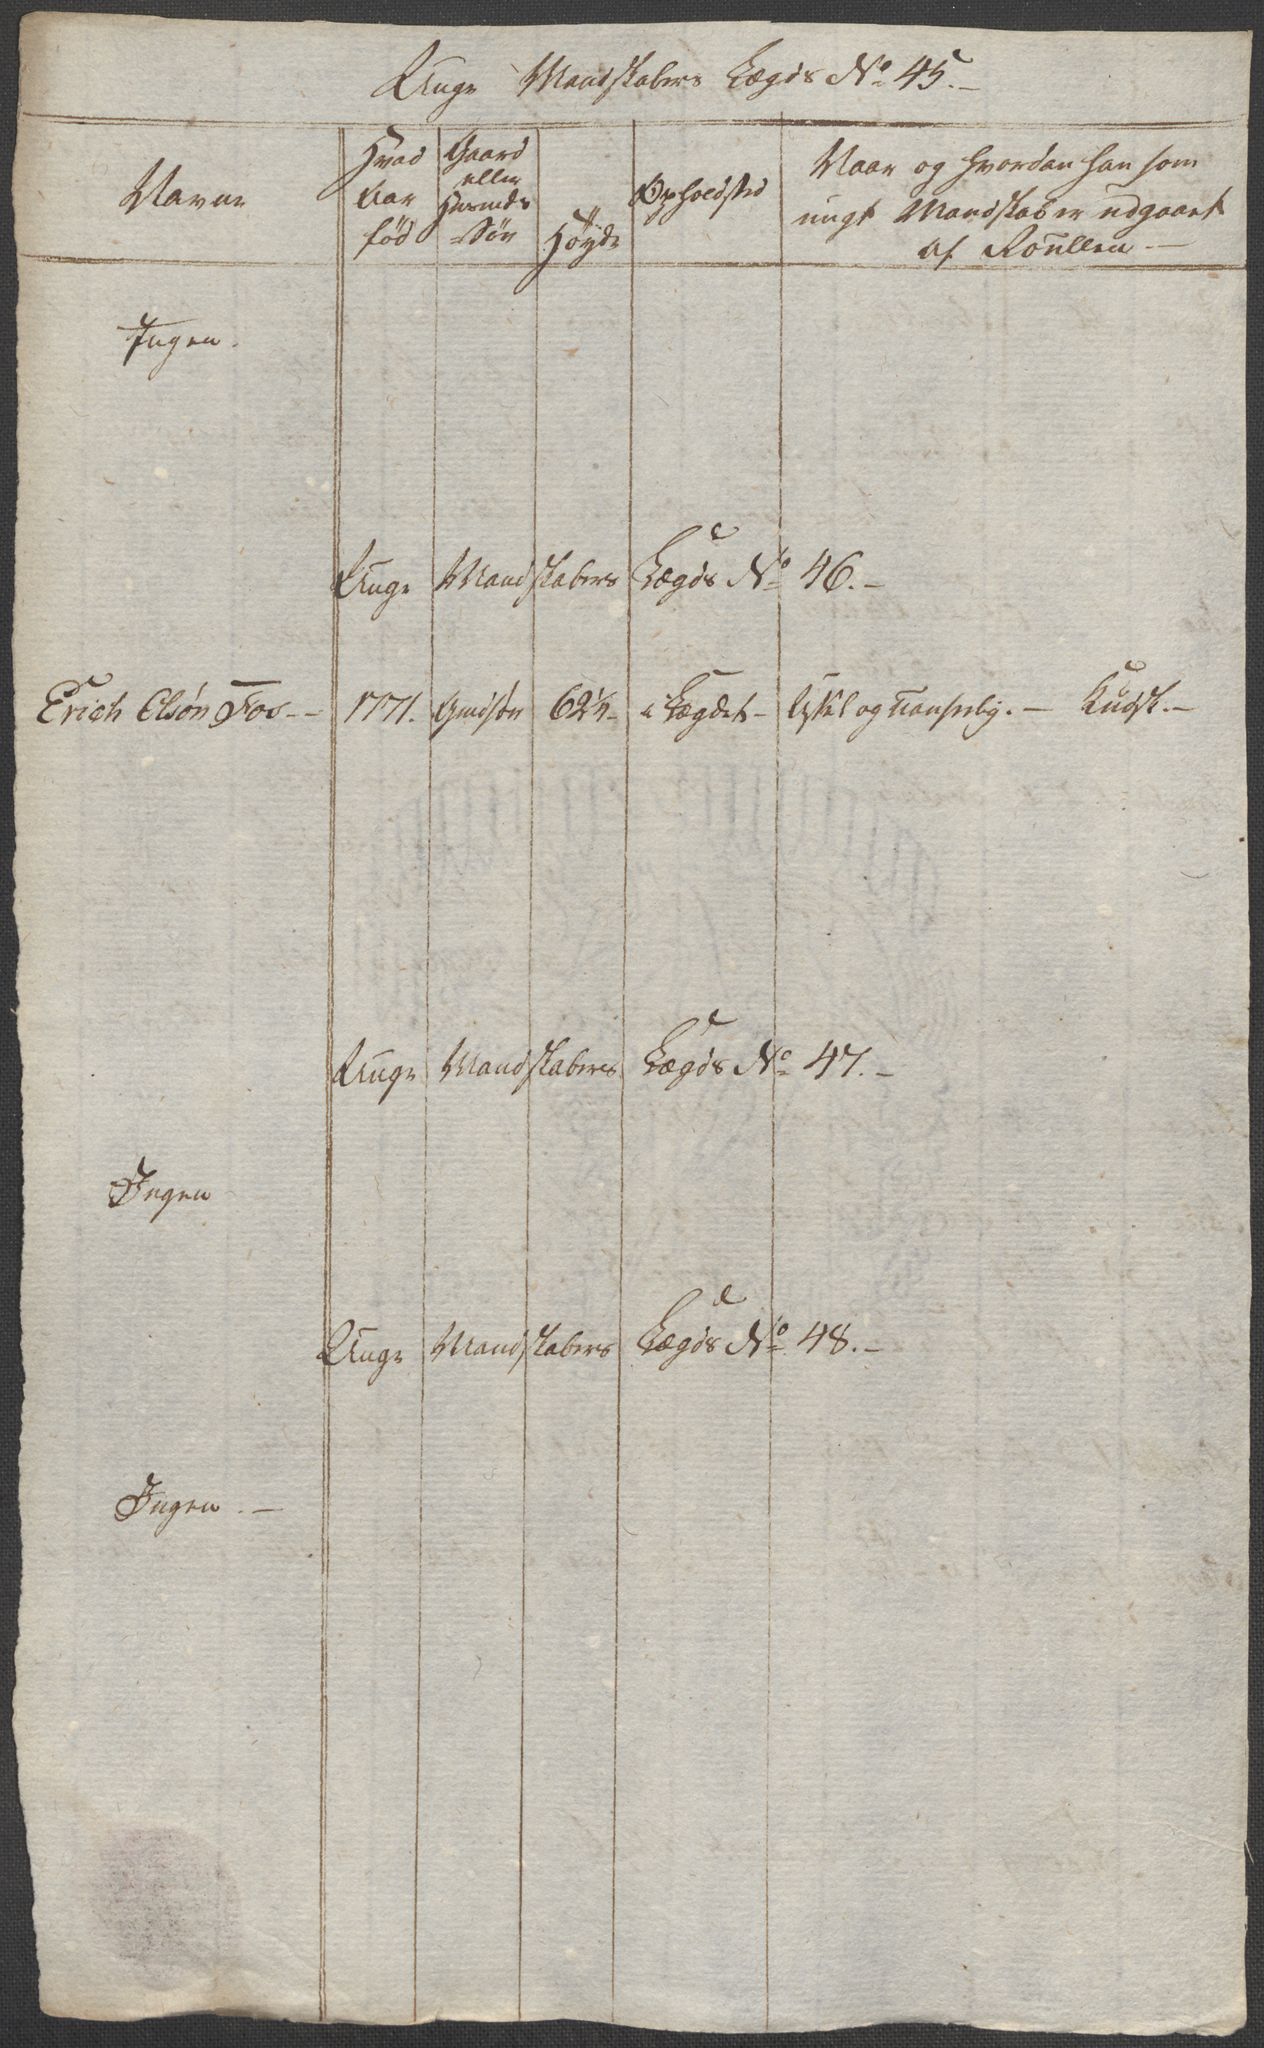 Unge Mandskabers Lægds No 45.-
Navne
Hvad Aar född
Gaard eller Huusmds Sön
Höyde
Opholdsted
Naar og hvordan han som ungt Mandskab er udgaaet af Roullen -
Ingen.
Unge Mandskabers Lægds No 46.-
Erich Olsön Fos-- 1771. Gmdsön 62½- i Lægdet- og Kudsk.-
Unge Mandskabers Lægds No 47.-
Ingen
Unge Mandskabers Lægds No 48.-
Ingen.-